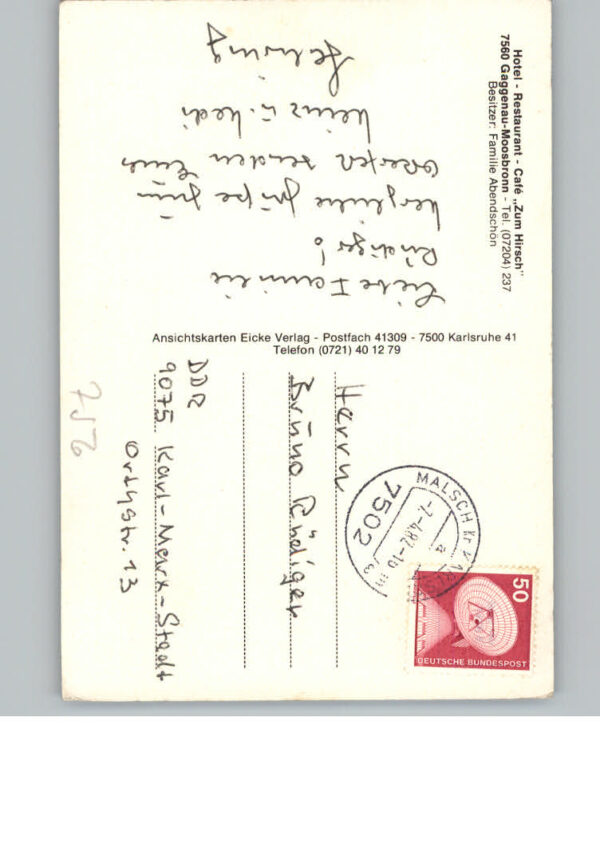 Hotel - Restaurant - Café „Zum Hirsch"
7560 Gaggenau-Moosbronn - Tel. (07204) 237
Besitzer: Familie Abendschön
Liebe Familie
Rüdiger!
herzliche Grüße zum
Osterfest senden Euch
Heinz u. Hedi
Ansichtskarten Eicke Verlag - Postfach 41309 - 7500 Karlsruhe 41
Telefon (0721) 40 12 79
MALSCH Kr KARLS
a
-7.-4.82-10
7502
3
50
DEUTSCHE BUNDESPOST
Herrn
Bruno Rüdiger
DDR
9075 Karl-Marx-Stadt
Orthstr. 13
752